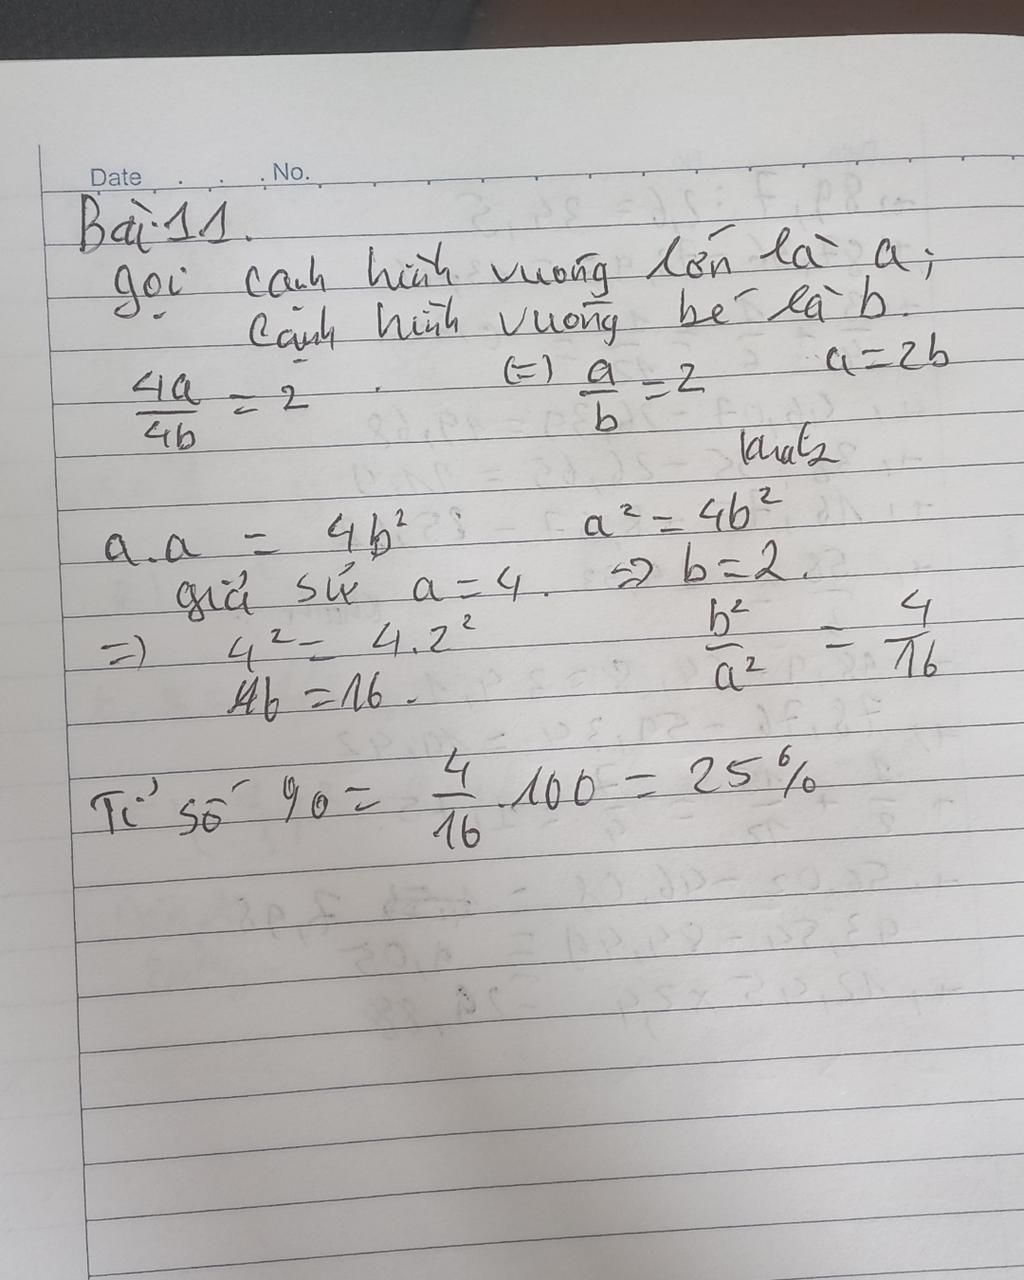 Date . . . No.
Bài 11.
gọi cạnh hình vuông lớn là a;
cạnh hình vuông bé là b.
4a/4b = 2 (=) a/b = 2 a = 2b
a.a = 4b² a² = 4b²
giả sử a = 4. => b = 2.
=) 4² = 4.2² b²/a² = 4/16
16 = 16.
Tỉ số % = 4/16 .100 = 25%